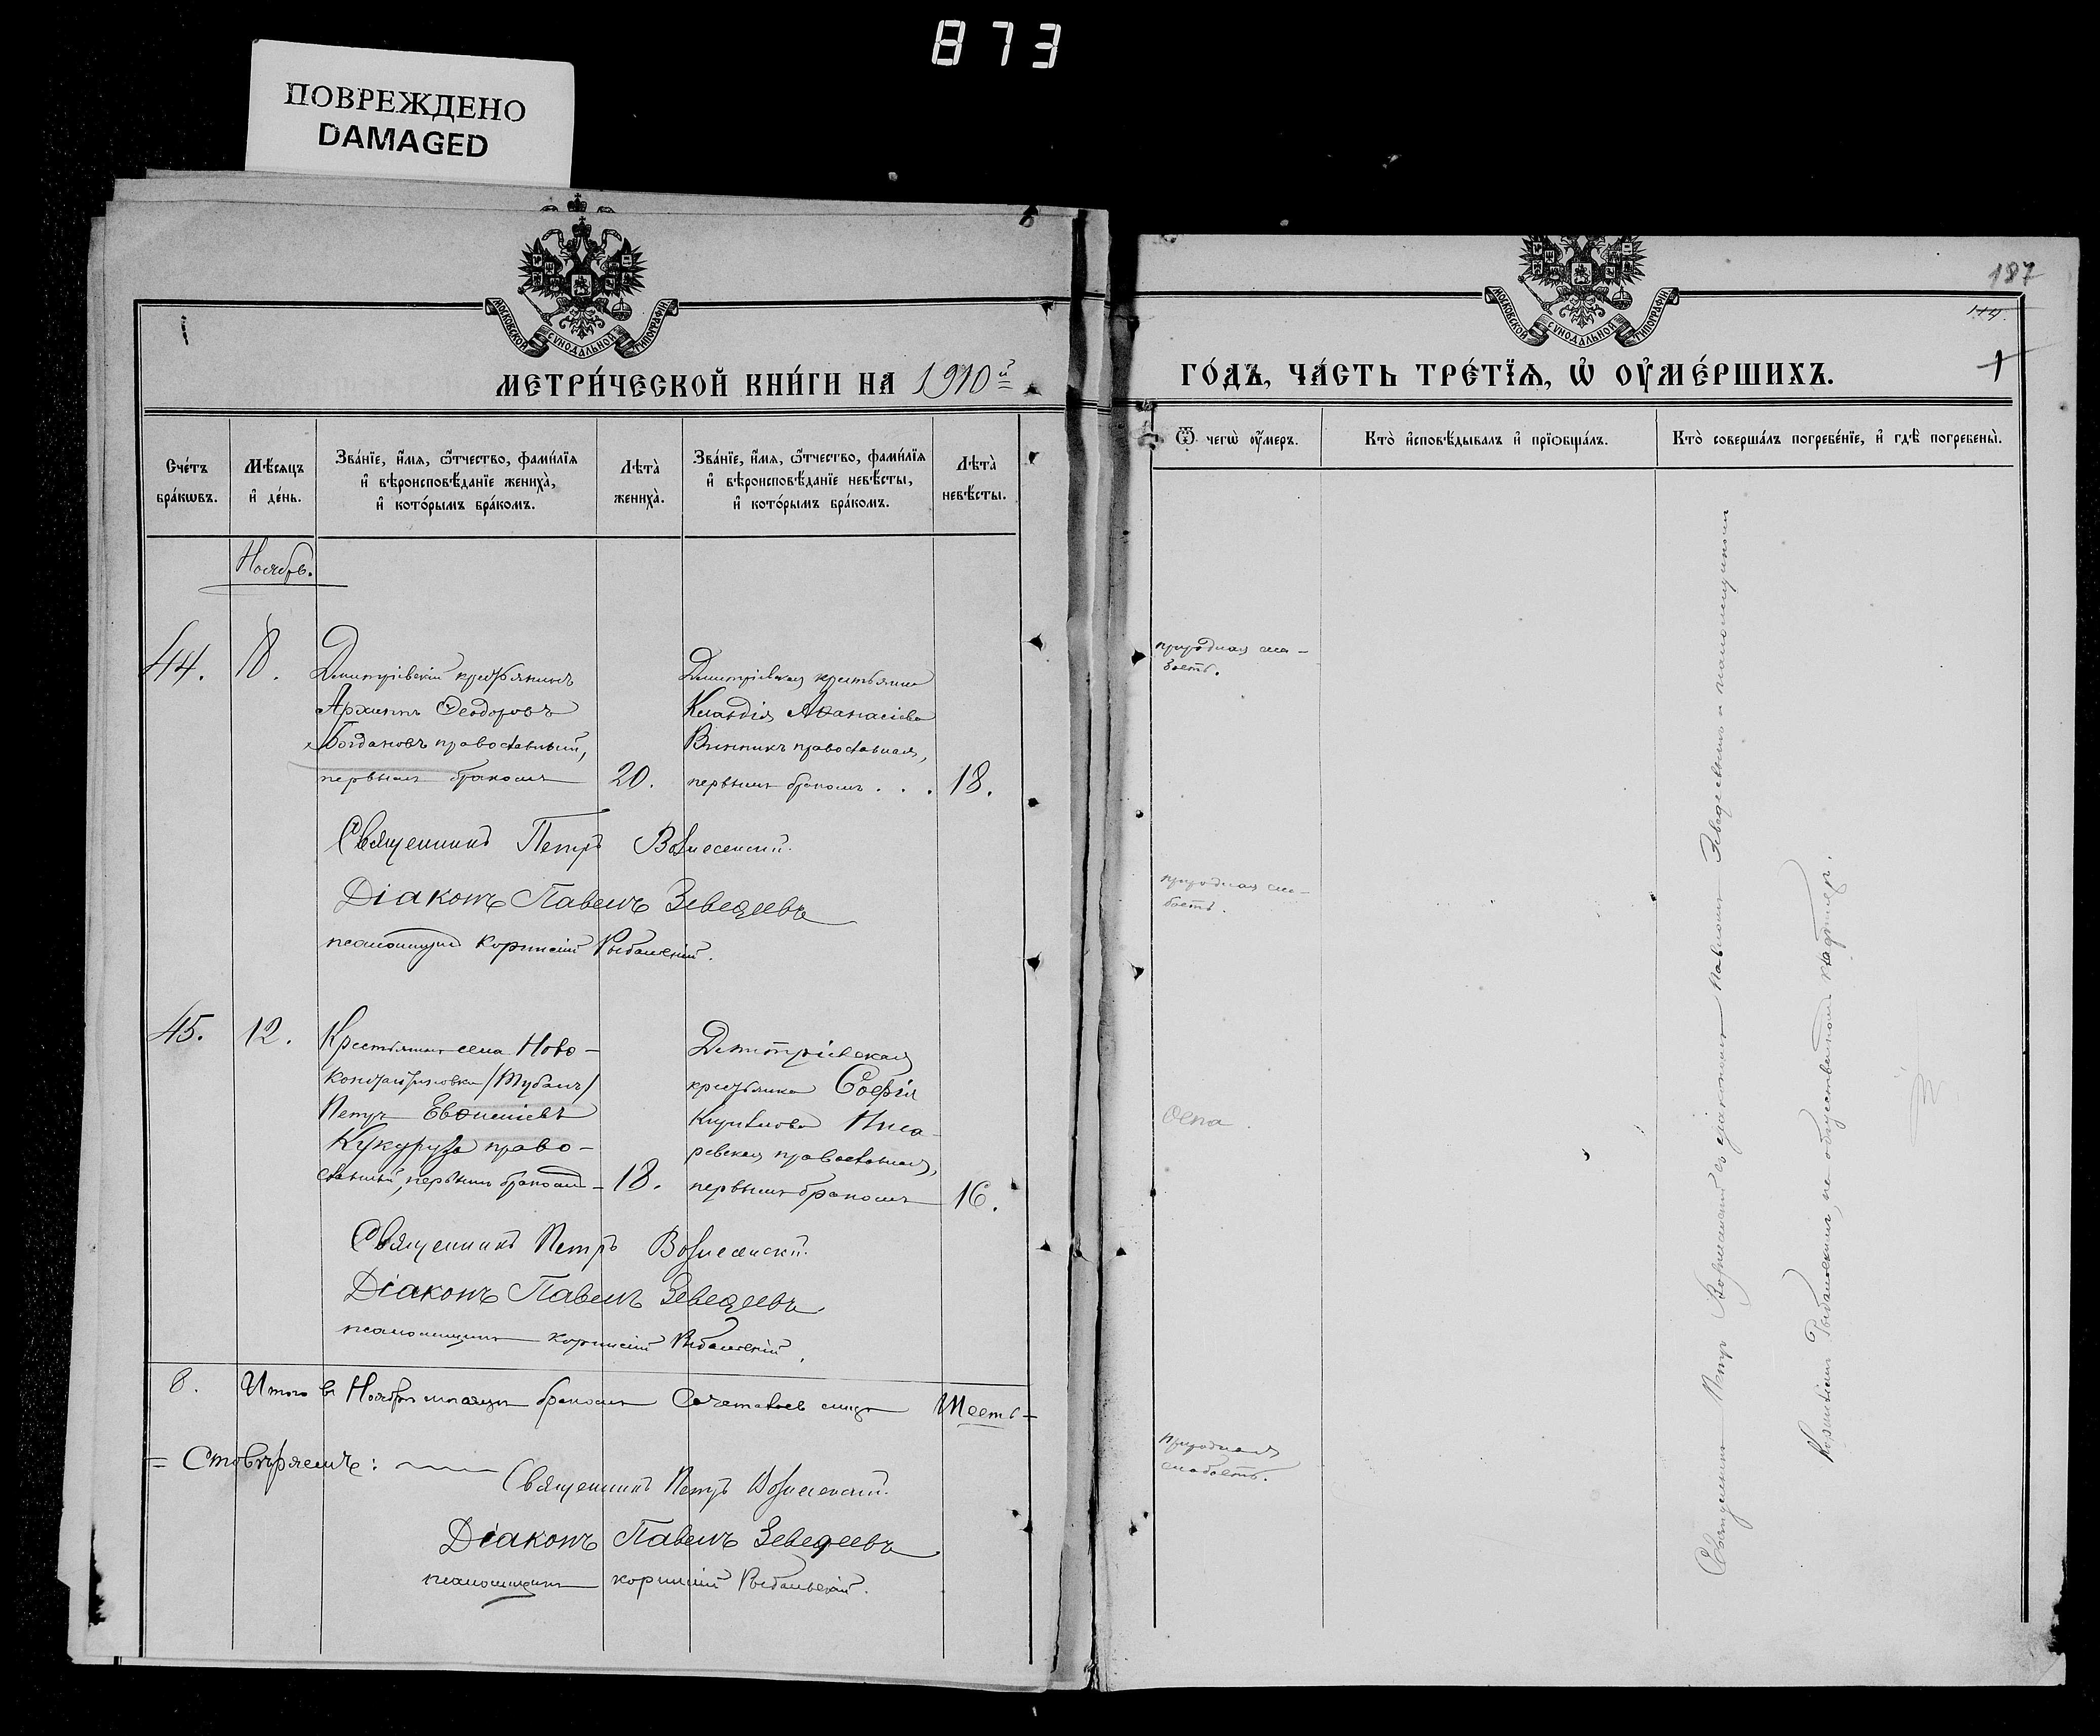 873
ПОВРЕЖДЕНО
DAMAGED
МОСКОВСКОЙ СѴНОДАЛЬНОЙ ТИПОГРАФІИ
МЕТРИ́ЧЕСКОЙ КНИ́ГИ НА 1910й
Сче́тъ бра́кωвъ.
Мѣ́сяцъ и҆ де́нь.
Зва́нїе, и҆́мя, ѻ҆́тчество, фами́лїя и҆ вѣроисповѣ́данїе женихà, и҆ кото́рымъ бра́комъ.
Лѣ́тà женихà.
Зва́нїе, и҆́мя, ѻ҆́тчество, фами́лїя и҆ вѣроисповѣ́данїе невѣ́сты, и҆ кото́рымъ бра́комъ.
Лѣ́тà невѣ́сты.
Ноябрь.
44.
Дмитріевскій крестьянинъ
Архиппъ Ѳеодоровъ
Богдановъ православный,
первымъ бракомъ
20.
Дмитріевская крестьянка
Клавдія Аѳанасіева
Винникъ православная,
первымъ бракомъ . . .
18.
Священникъ Петръ Вознесенскій.
Діаконъ Павелъ Зеведеевъ
псаломщикъ Корнилій Рыбальскій.
45.
12.
Крестьянинъ села Ново-
константиновки /Тубалъ/
Петръ Евѳиміевъ
Кукуруза право-
славный, первымъ бракомъ -
18.
Дмитріевская
крестьянка Софія
Кирилова Писа-
ревская православная,
первымъ бракомъ
16.
Священникъ Петръ Вознесенскій.
Діаконъ Павелъ Зеведеевъ.
псаломщикъ Корнилій Рыбальскій.
Итого въ Ноябрѣ мѣсяцѣ бракомъ сочеталось лицъ Шесть
Священникъ Петръ Вознесенскій.
Діаконъ Павелъ Зеведеевъ
псаломщикъ Корнилій Рыбальскій.
187
114.
1
МОСКОВСКОЙ СѴНОДАЛЬНОЙ ТИПОГРАФІИ
ГО́ДЪ, ЧА́СТЬ ТРЕ́ТЇЯ, Ѡ҆ ОУ҆МЕ́РШИХЪ.
Ѿ чегѡ̀ оу҆́меръ.
Ктò и҆сповѣ́дывалъ и҆ прїѡбща́лъ.
Ктò соверша́лъ погребе́нїе, и҆ гдѣ̀ погребены̀.
природная сла-
бость.
природная сла-
бость.
Оспа.
природная
слабость.
Священникъ Петръ Вознесенскій съ діакономъ Павломъ Зеведеевымъ и псаломщикомъ
Корниліемъ Рыбальскимъ, на общественномъ кладбищѣ.